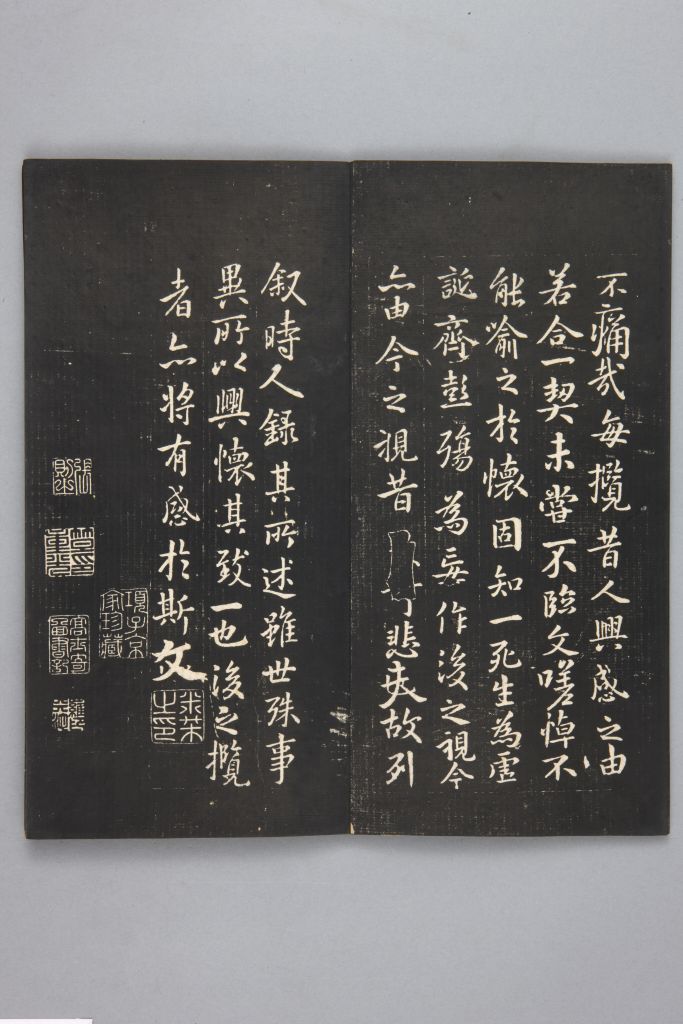 不痛哉每攬昔人興感之由
若合一契未嘗不臨文嗟悼不
能喻之於懷固知一死生為虛
誕齊彭殤為妄作後之視今
亦由今之視昔悲夫故列
叙時人錄其所述雖世殊事
異所以興懷其致一也後之攬
者亦將有感於斯文
項子京家珍藏
張則之